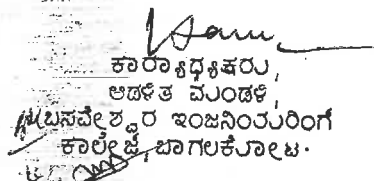 ಕಾರ್ಯಾಧ್ಯಕ್ಷರು,
ಆಡಳಿತ ಮಂಡಳಿ,
ಬಸವೇಶ್ವರ ಇಂಜನಿಯರಿಂಗ
ಕಾಲೇಜ, ಬಾಗಲಕೋಟ.